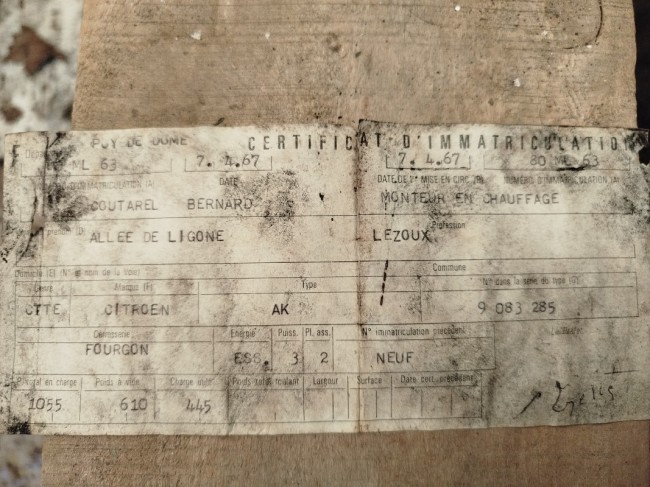 PUY DE DOME CERTIFICAT D'IMMATRICULATION
ML 63 7. 4.67 7. 4.67 80 ML 63
D'IMMATRICULATION (A) DATE DATE DE 1re MISE EN CIRC (B) NUMÉRO D'IMMATRICULATION (A)
COUTAREL BERNARD MONTEUR EN CHAUFFAGE
Profession
ALLEE DE LIGONE LEZOUX
Domicile (E) (N° et nom de la voie) Commune
Genre Marque (F) Type N° dans la série du type (G)
CTTE CITROEN AK 9 083 285
Carrosserie Energie Puiss. Pl. ass. N° immatriculation précédent
FOURGON ESS. 3 2 NEUF
Poids à vide Charge utile Poids total roulant Largeur Surface Date cert. précédent
1055 610 445